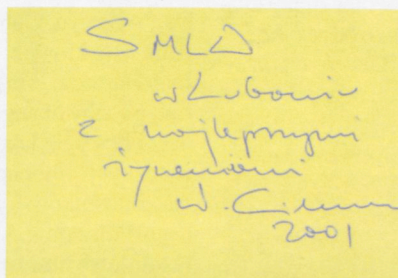 SMLW
w Luboniu
z najlepszymi
życzeniami
W.
2001